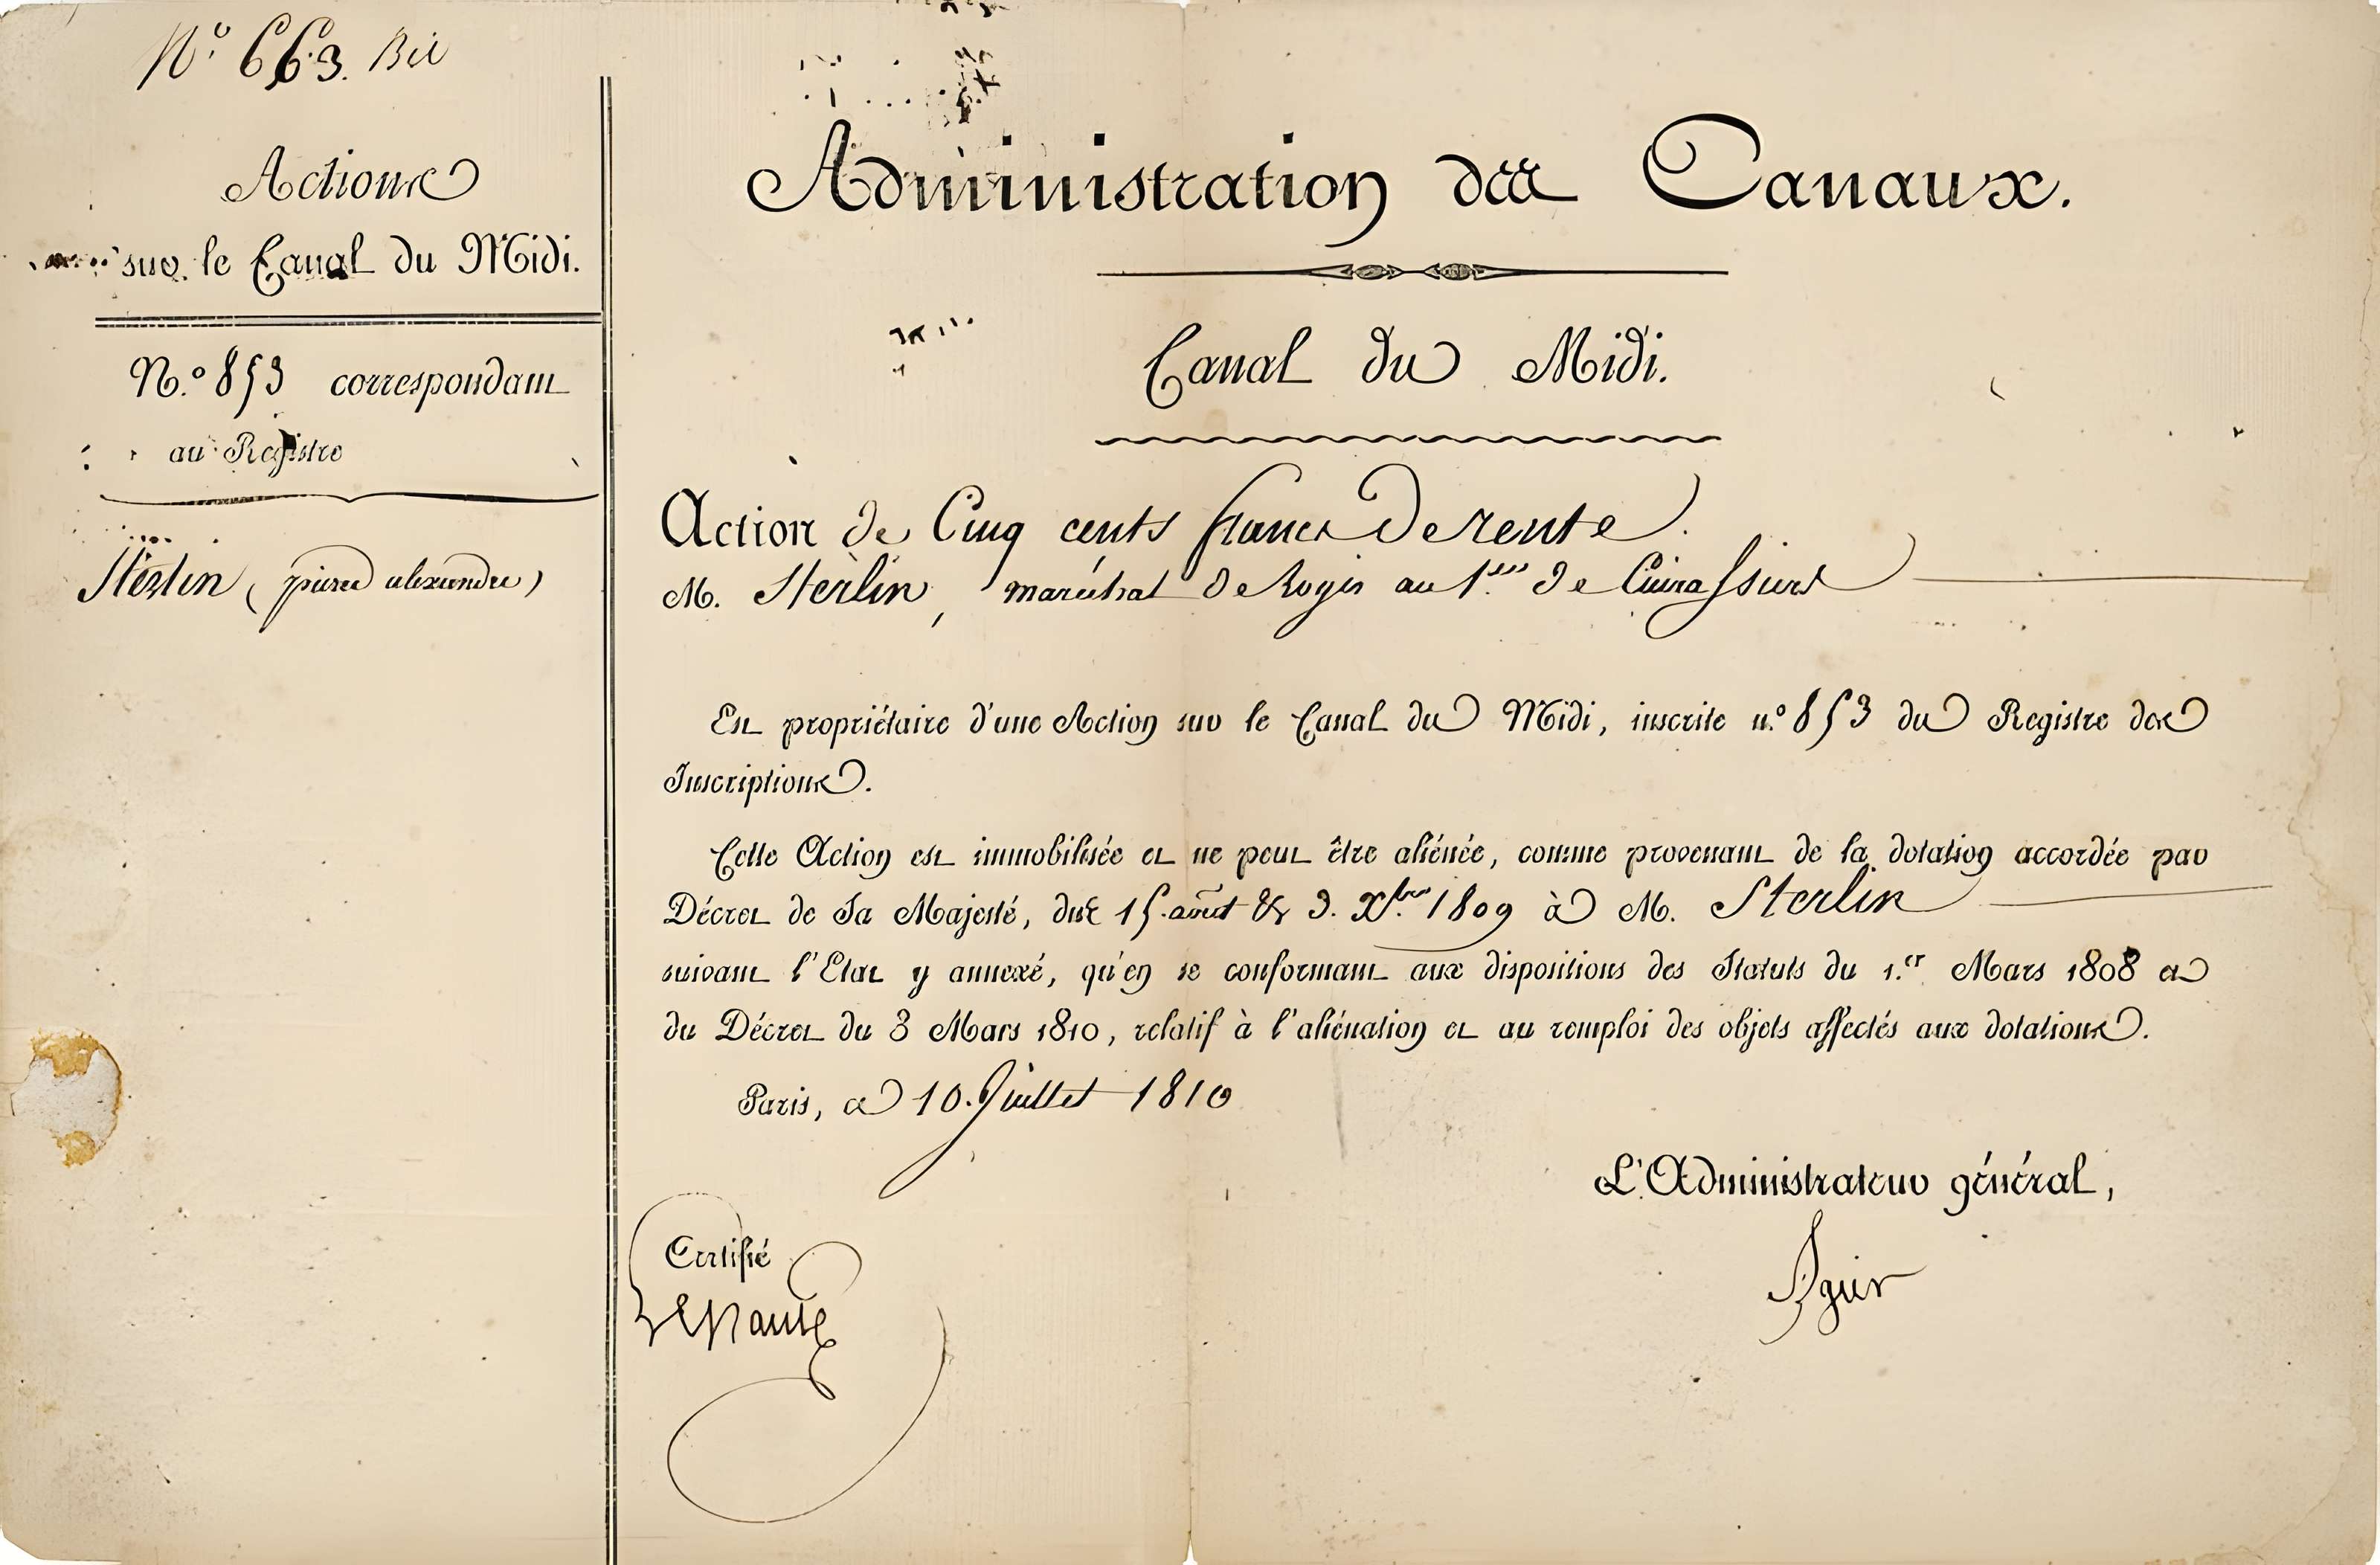 N.o 663. Bis
Actions
sur le Canal du Midi.
N.o 853 correspondant
au Registre
Sterlin (pierre alexandre)
Administration des Canaux.
Canal du Midi.
Action de Cinq cents francs De rente.
M. Sterlin, maréchal De Logis au 1.er De Cuirassiers
Est propriétaire d'une Action sur le Canal du Midi, inscrite n.o 853 du Registre des
Inscriptions.
Cette Action est immobilisée et ne peut être aliénée, comme provenant de la dotation accordée par
Décret de Sa Majesté, des 15. août & 3. Xbre 1809 à M. Sterlin
suivant l'Etat y annexé, qu'en se conformant aux dispositions des Statuts du 1.er Mars 1808 et
du Décret du 3 Mars 1810, relatif à l'aliénation et au remploi des objets affectés aux dotations.
Paris, ce 10. Juillet 1810
L'Administrateur général,
Certifié